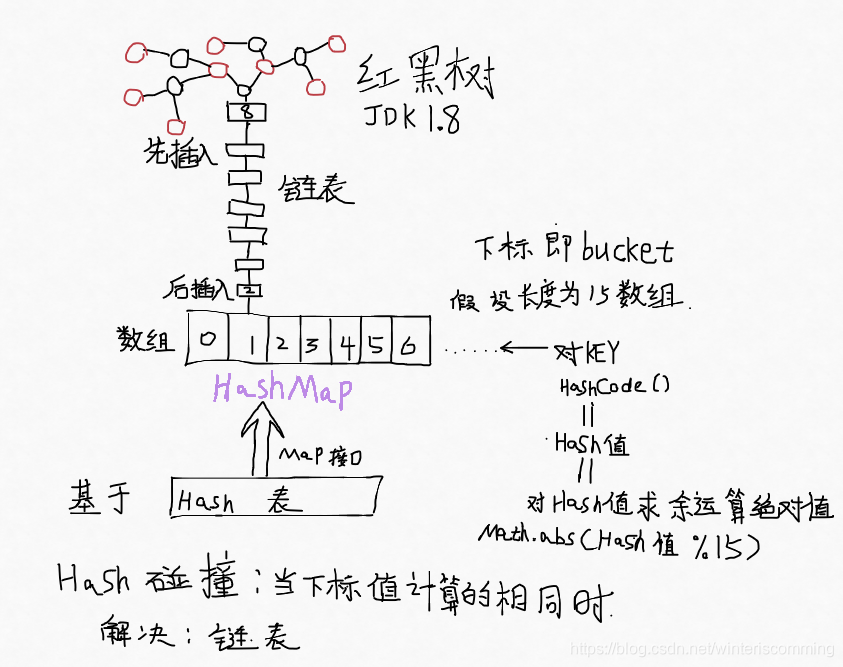 红黑树
JDK1.8
8
先插入
链表
后插入 2
下标即bucket
假设长度为15数组.
数组 0 1 2 3 4 5 6 ...... 对KEY
HashCode()
HashMap
Hash值
Map接口
基于 Hash 表
对Hash值求余运算绝对值
Math.abs(Hash值 %15)
Hash碰撞:当下标值计算的相同时.
解决:链表
https://blog.csdn.net/winteriscomming